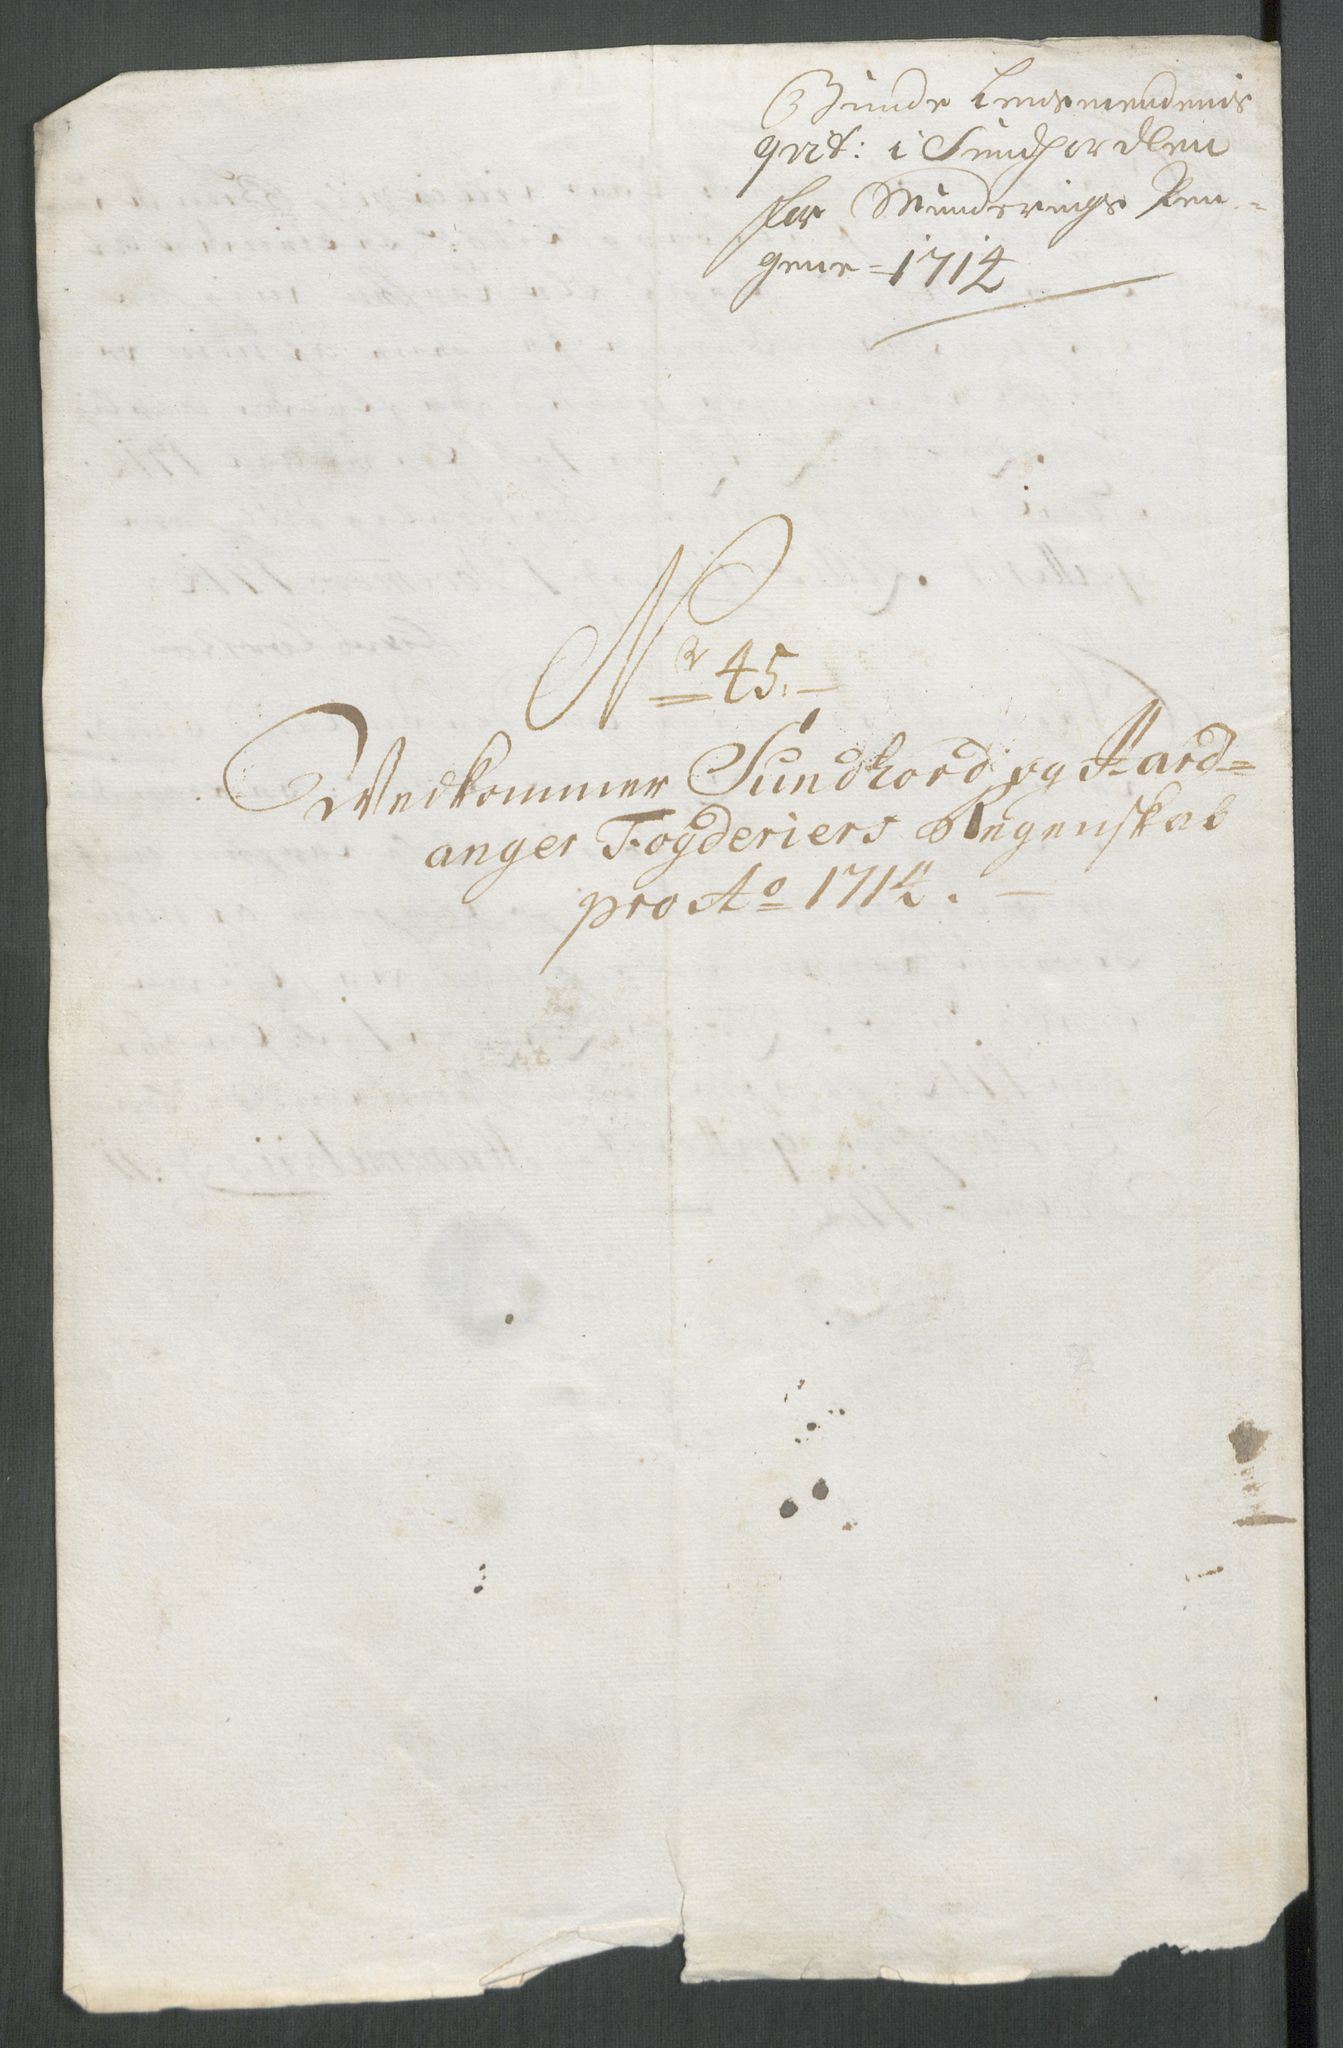 Bunde Lensmendenis
qvit: i Sundhordlen
for Munderings Pen-
gene = 1714
Nr 45.
Vedkommer Sundhord og Hard-
anger Fogderiers Regenskab
pro Ao 1714.